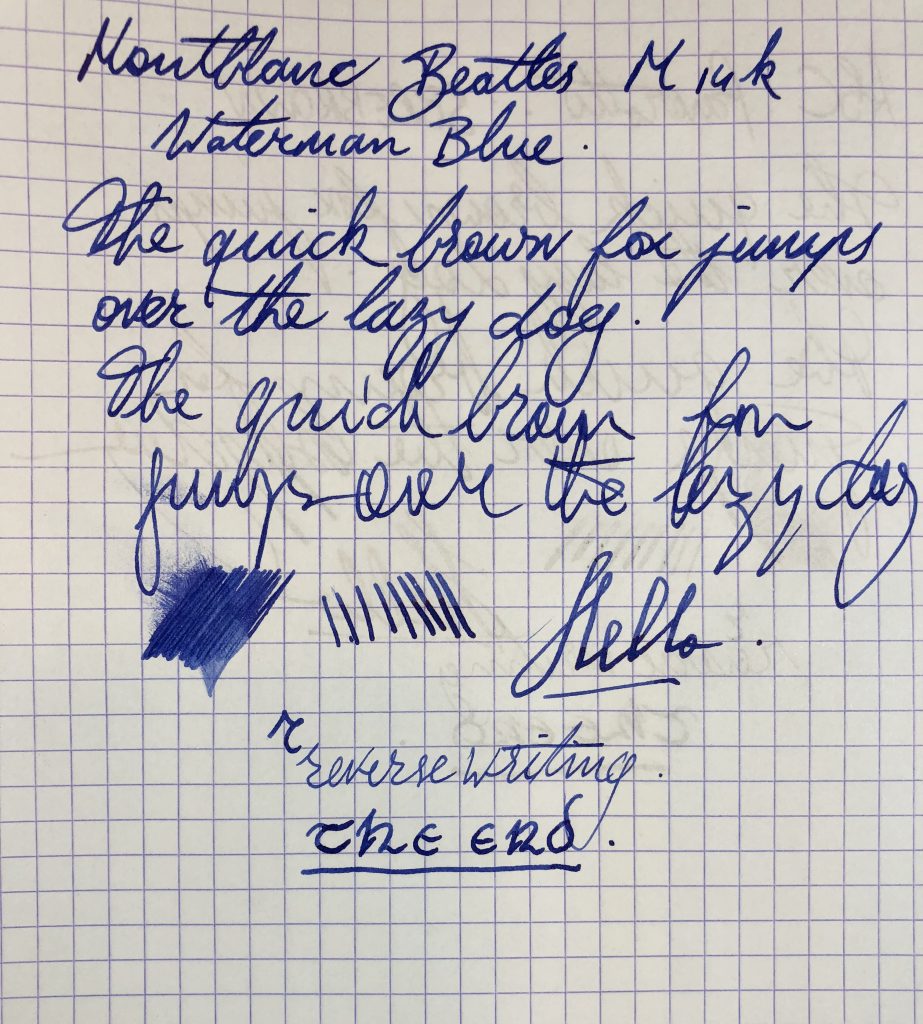 Montblanc Beatles M ink
Waterman Blue.
The quick brown fox jumps
over the lazy dog.
The quick brown fox
jumps over the lazy dog
Hello.
r
reverse writing.
The end.